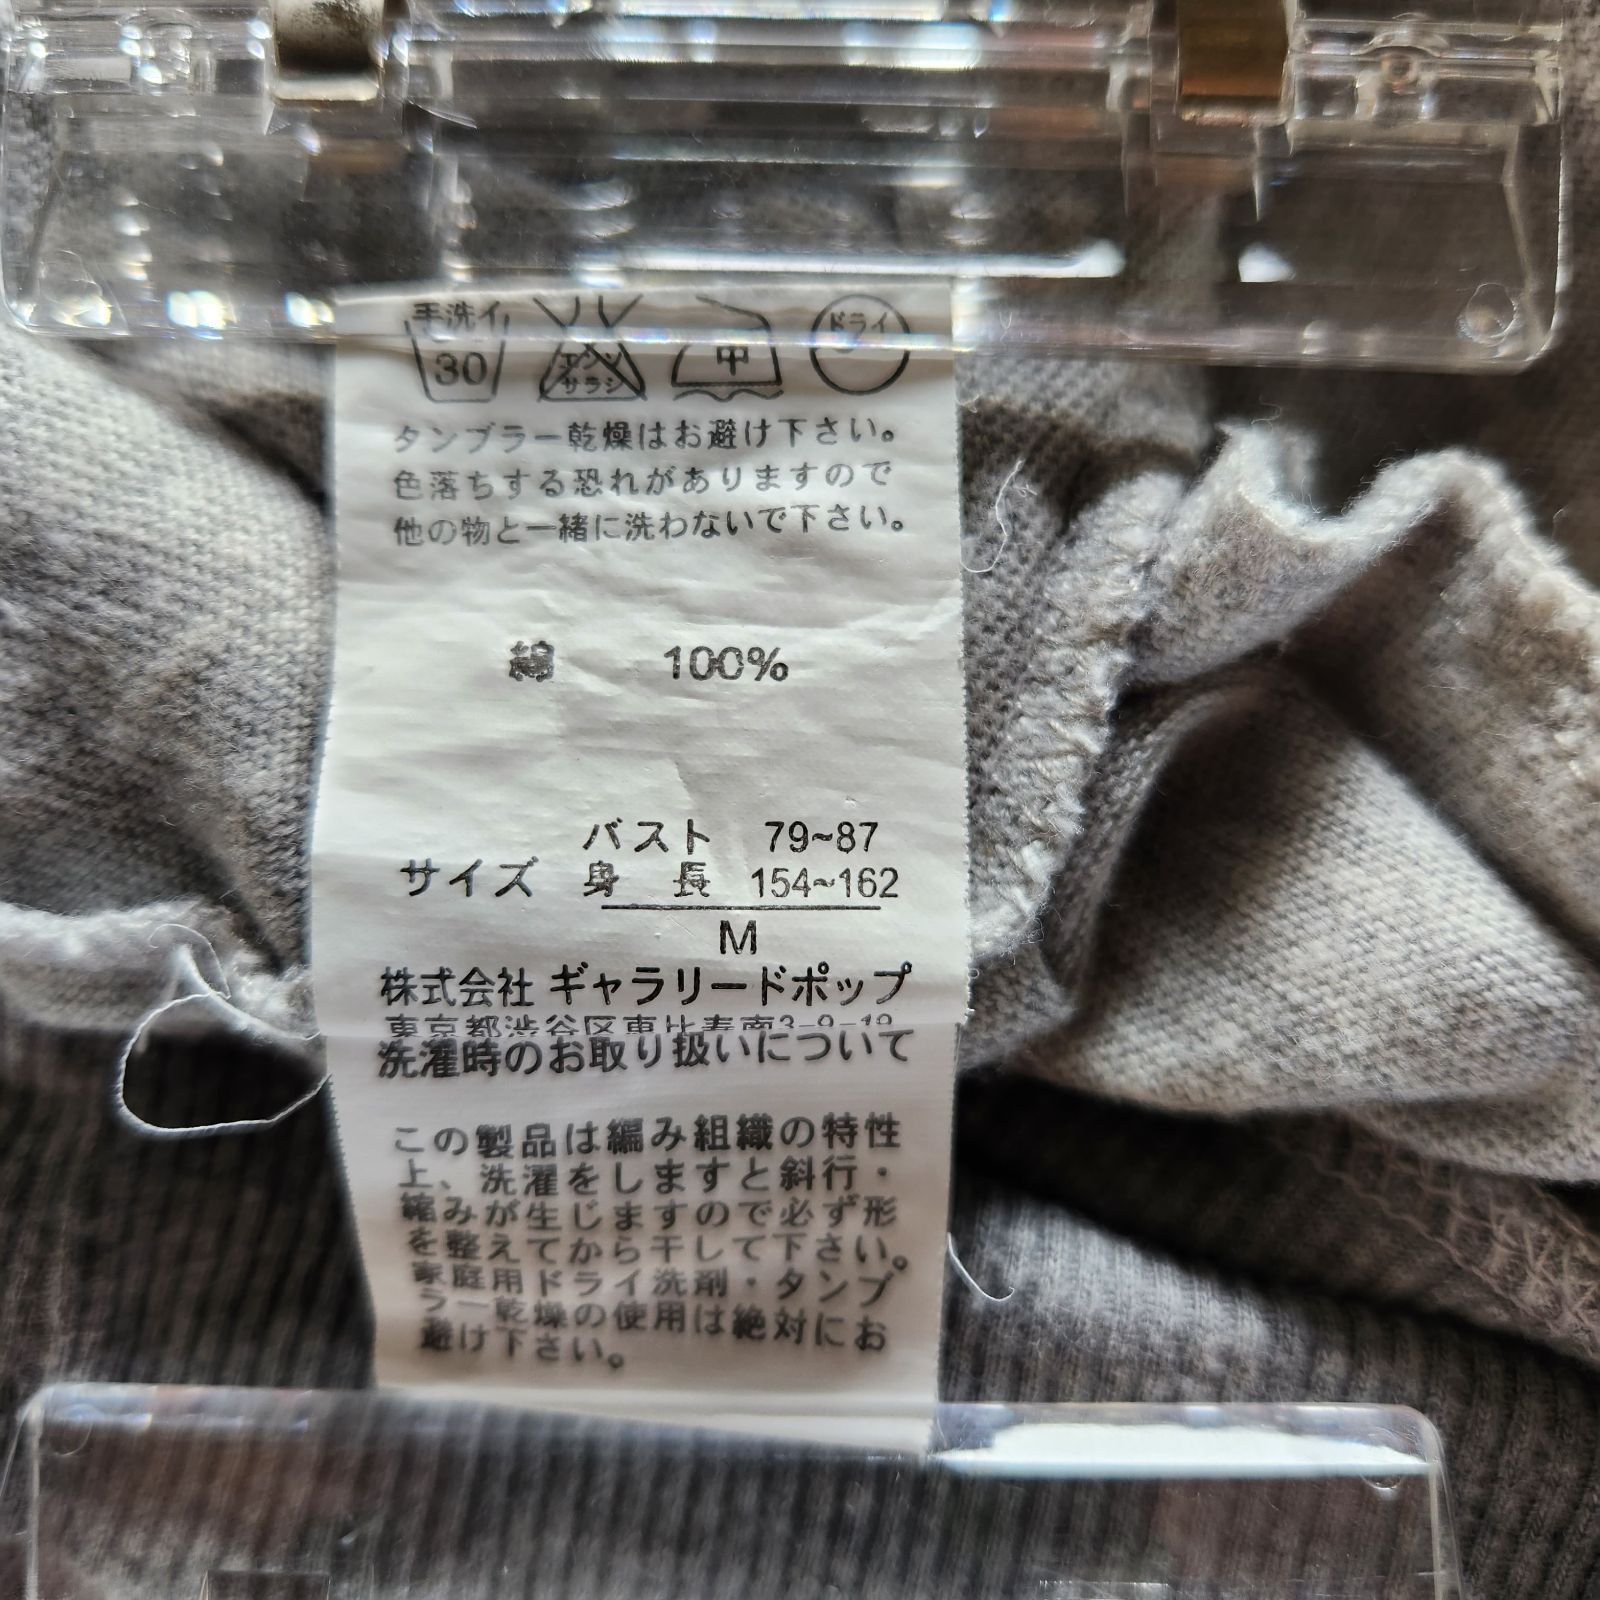 手洗イ
30
エンソ
サラシ
中
ドライ
タンブラー乾燥はお避け下さい。
色落ちする恐れがありますので
他の物と一緒に洗わないで下さい。
綿 100%
バスト 79~87
サイズ 身長 154~162
M
株式会社 ギャラリードポップ
東京都渋谷区恵比寿南3-9-19
洗濯時のお取り扱いについて
この製品は編み組織の特性
上、洗濯をしますと斜行・
縮みが生じますので必ず形
を整えてから干して下さい。
家庭用ドライ洗剤・タンブ
ラー乾燥の使用は絶対にお
避け下さい。